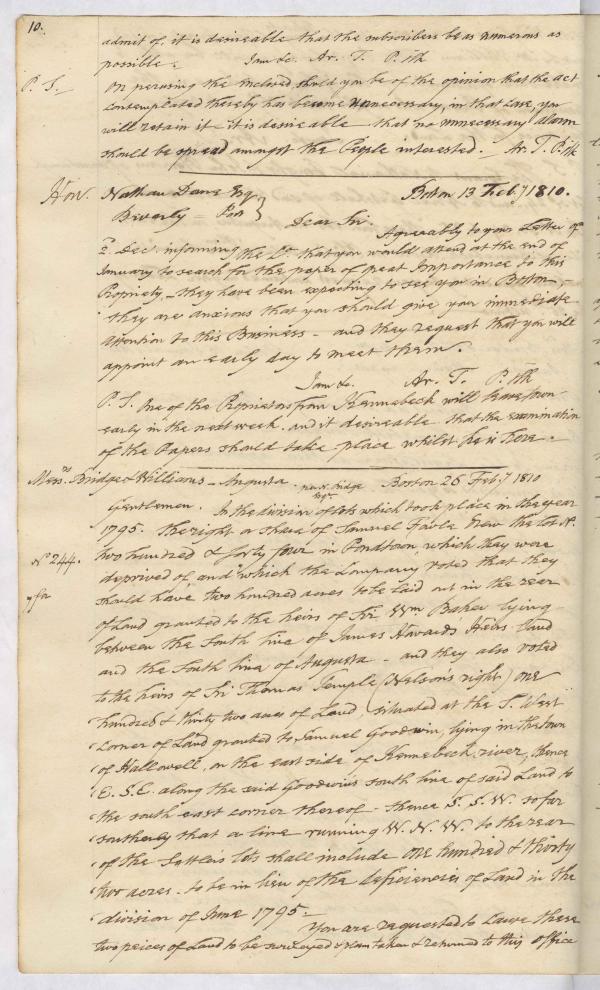 10.
admit of, it is desireable that the subscribers be as numerous as
possible. I am &c. Ar. T. P. Clk
P. S. On perusing the inclosed should you be of the opinion that the act
contemplated thereby has become unnecessary, in that case, you
will retain it - it is desireable - that no unnecessary alarm
should be spread amongst the People interested. - Ar. T. P. Clk
Hon. Nathan Dane Esq Boston 13 Feby 1810.
Beverly = Post
Dear Sir.
Agreeably to your Letter of
2d. Dec. informing the that you would attend at the end of
January to search for the papers of great Importance to this
Propriety - they have been expecting to see you in Boston -
they are anxious that you should give your immediate
attention to this Business - and they request that you will
appoint an early day to meet them.
I am &c. Ar. T. P. Clk
P. S. One of the Proprietors from Kennebeck will leave town
early in the next week. and it desireable that the examination
of the Papers should take place whilst he is here.
Messrs. Bridge & Williams - Augusta. Boston 26 Feby 1810
Gentlemen. In the division of lots which took place in the year
1795. the right or share of Samuel drew the lot No.
No 244. two hundred & forty four in Pondtown, which they were
deprived of, and which the Company voted that they
should have two hundred acres to be laid out in the rear
of Land granted to the heirs of Sir Wm Baker lying
between the South line of James Howards Heirs land
and the South line of Augusta - and they also voted
to the heirs of Sir Thomas Temple (Nelsons right) one
hundred & thirty two acres of Land, situated at the S. West
corner of Land granted to Samuel Goodwin, lying in the town
of Hallowell, on the east side of Kennebeck river, thence
E. S. E. along the said Goodwins south line of said Land to
the south east corner thereof - thence S. S. W. so far
southerly that a line running W. N. W. to the rear
of the Settlers lots shall include one hundred & thirty
two acres. to be in lieu of the deficiencies of Land in the
division of June 1795.
You are requested to cause these
two peices of Land to be surveyed & plan taken & returned to this office